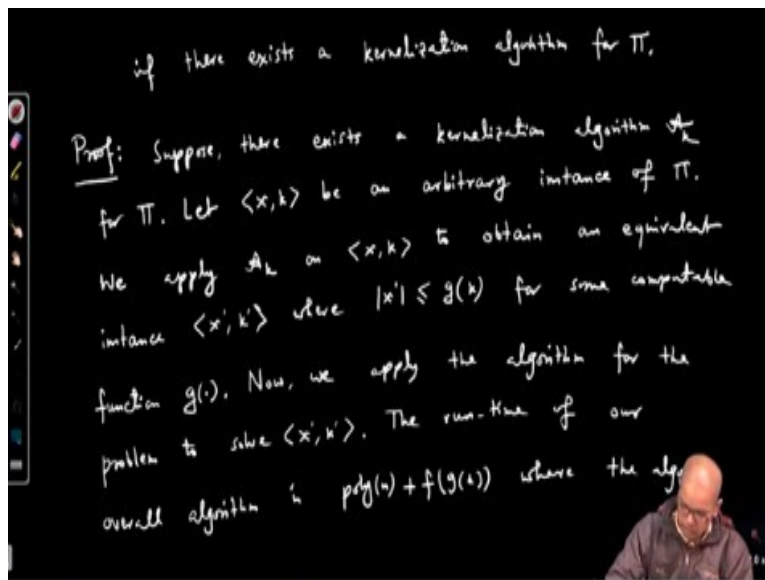 if there exists a kernelization algorithm for Π.
Proof: Suppose, there exists a kernelization algorithm A_k
for Π. Let ⟨x,k⟩ be an arbitrary intance of Π.
We apply A_k on ⟨x,k⟩ to obtain an equivalent
intance ⟨x',k'⟩ where |x'| ≤ g(k) for some computable
function g(.). Now, we apply the algorithm for the
problem to solve ⟨x',k'⟩. The run-time of our
overall algorithm is poly(n) + f(g(k)) where the algo